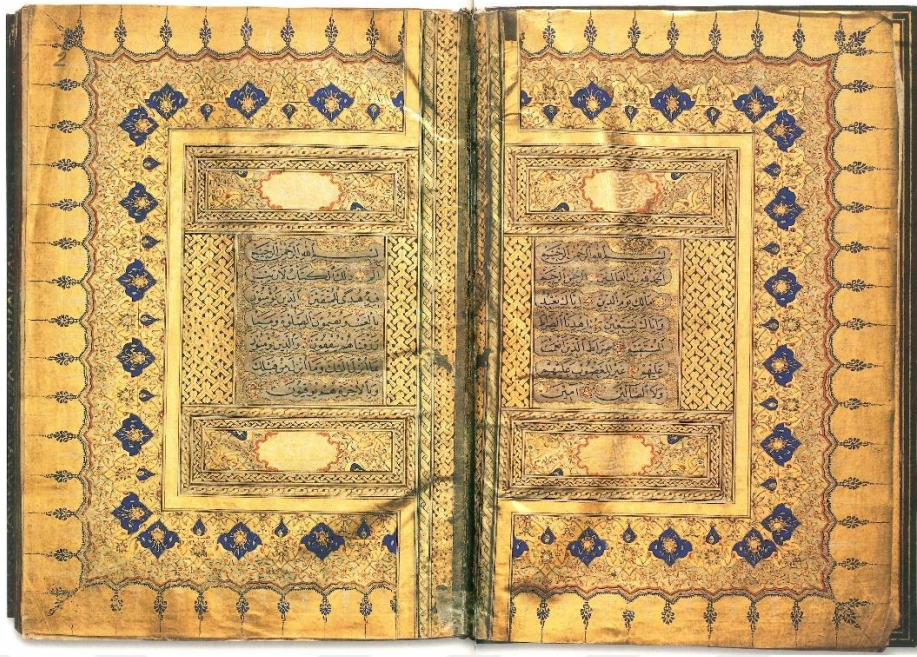 بسم الله الرحمن الرحيم
الحمد لله رب العالمين الرحمن الرحيم
مالك يوم الدين اياك نعبد
واياك نستعين اهدنا الصراط
المستقيم صراط الذين انعمت
عليهم غير المغضوب عليهم
ولا الضالين امين
بسم الله الرحمن الرحيم
الم ذلك الكتاب لا ريب
فيه هدى للمتقين الذين يؤمنون
بالغيب ويقيمون الصلوة ومما
رزقناهم ينفقون والذين يؤمنون
بما انزل اليك وما انزل من قبلك
وبالاخرة هم يوقنون